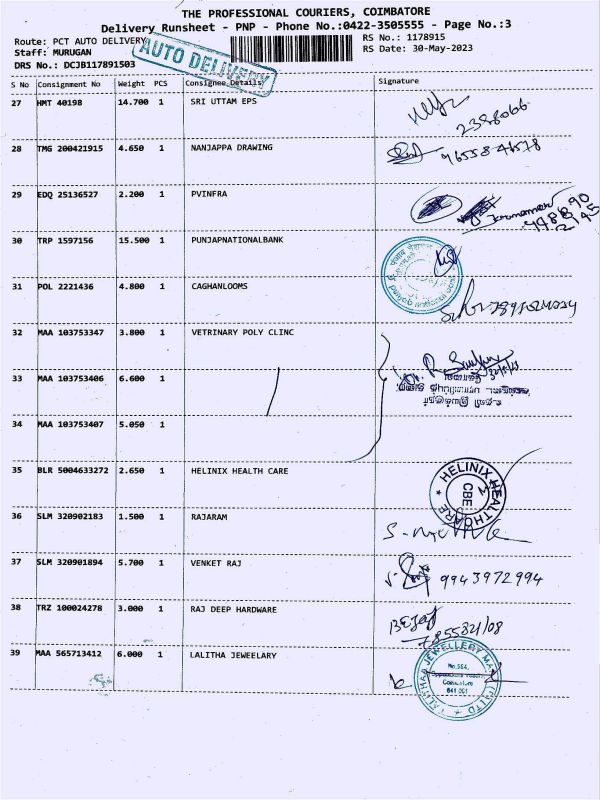 THE PROFESSIONAL COURIERS, COIMBATORE
Delivery Runsheet - PNP - Phone No.:0422-3505555 - Page No.:3
Route: PCT AUTO DELIVERY
Staff: MURUGAN
DRS No.: DCJB117891503
AUTO DELIVERY
RS No.: 1178915
RS Date: 30-May-2023
S No Consignment No Weight PCS Consignee Details Signature
27 HMT 40198 14.700 1 SRI UTTAM EPS
2388066
28 TMG 200421915 4.650 1 NANJAPPA DRAWING
29 EDQ 25136527 2.200 1 PVINFRA
30 TRP 1597156 15.500 1 PUNJAPNATIONALBANK
31 POL 2221436 4.800 1 CAGHANLOOMS
32 MAA 103753347 3.800 1 VETRINARY POLY CLINC
33 MAA 103753406 6.600 1
34 MAA 103753407 5.050 1
35 BLR 5004633272 2.650 1 HELINIX HEALTH CARE
HELINIX HEALTHCARE
CBE
36 SLM 320902183 1.500 1 RAJARAM
37 SLM 320901894 5.700 1 VENKET RAJ
9943972994
38 TRZ 100024278 3.000 1 RAJ DEEP HARDWARE
39 MAA 565713412 6.000 1 LALITHA JEWEELARY
No.564,
Coimbatore
641 001